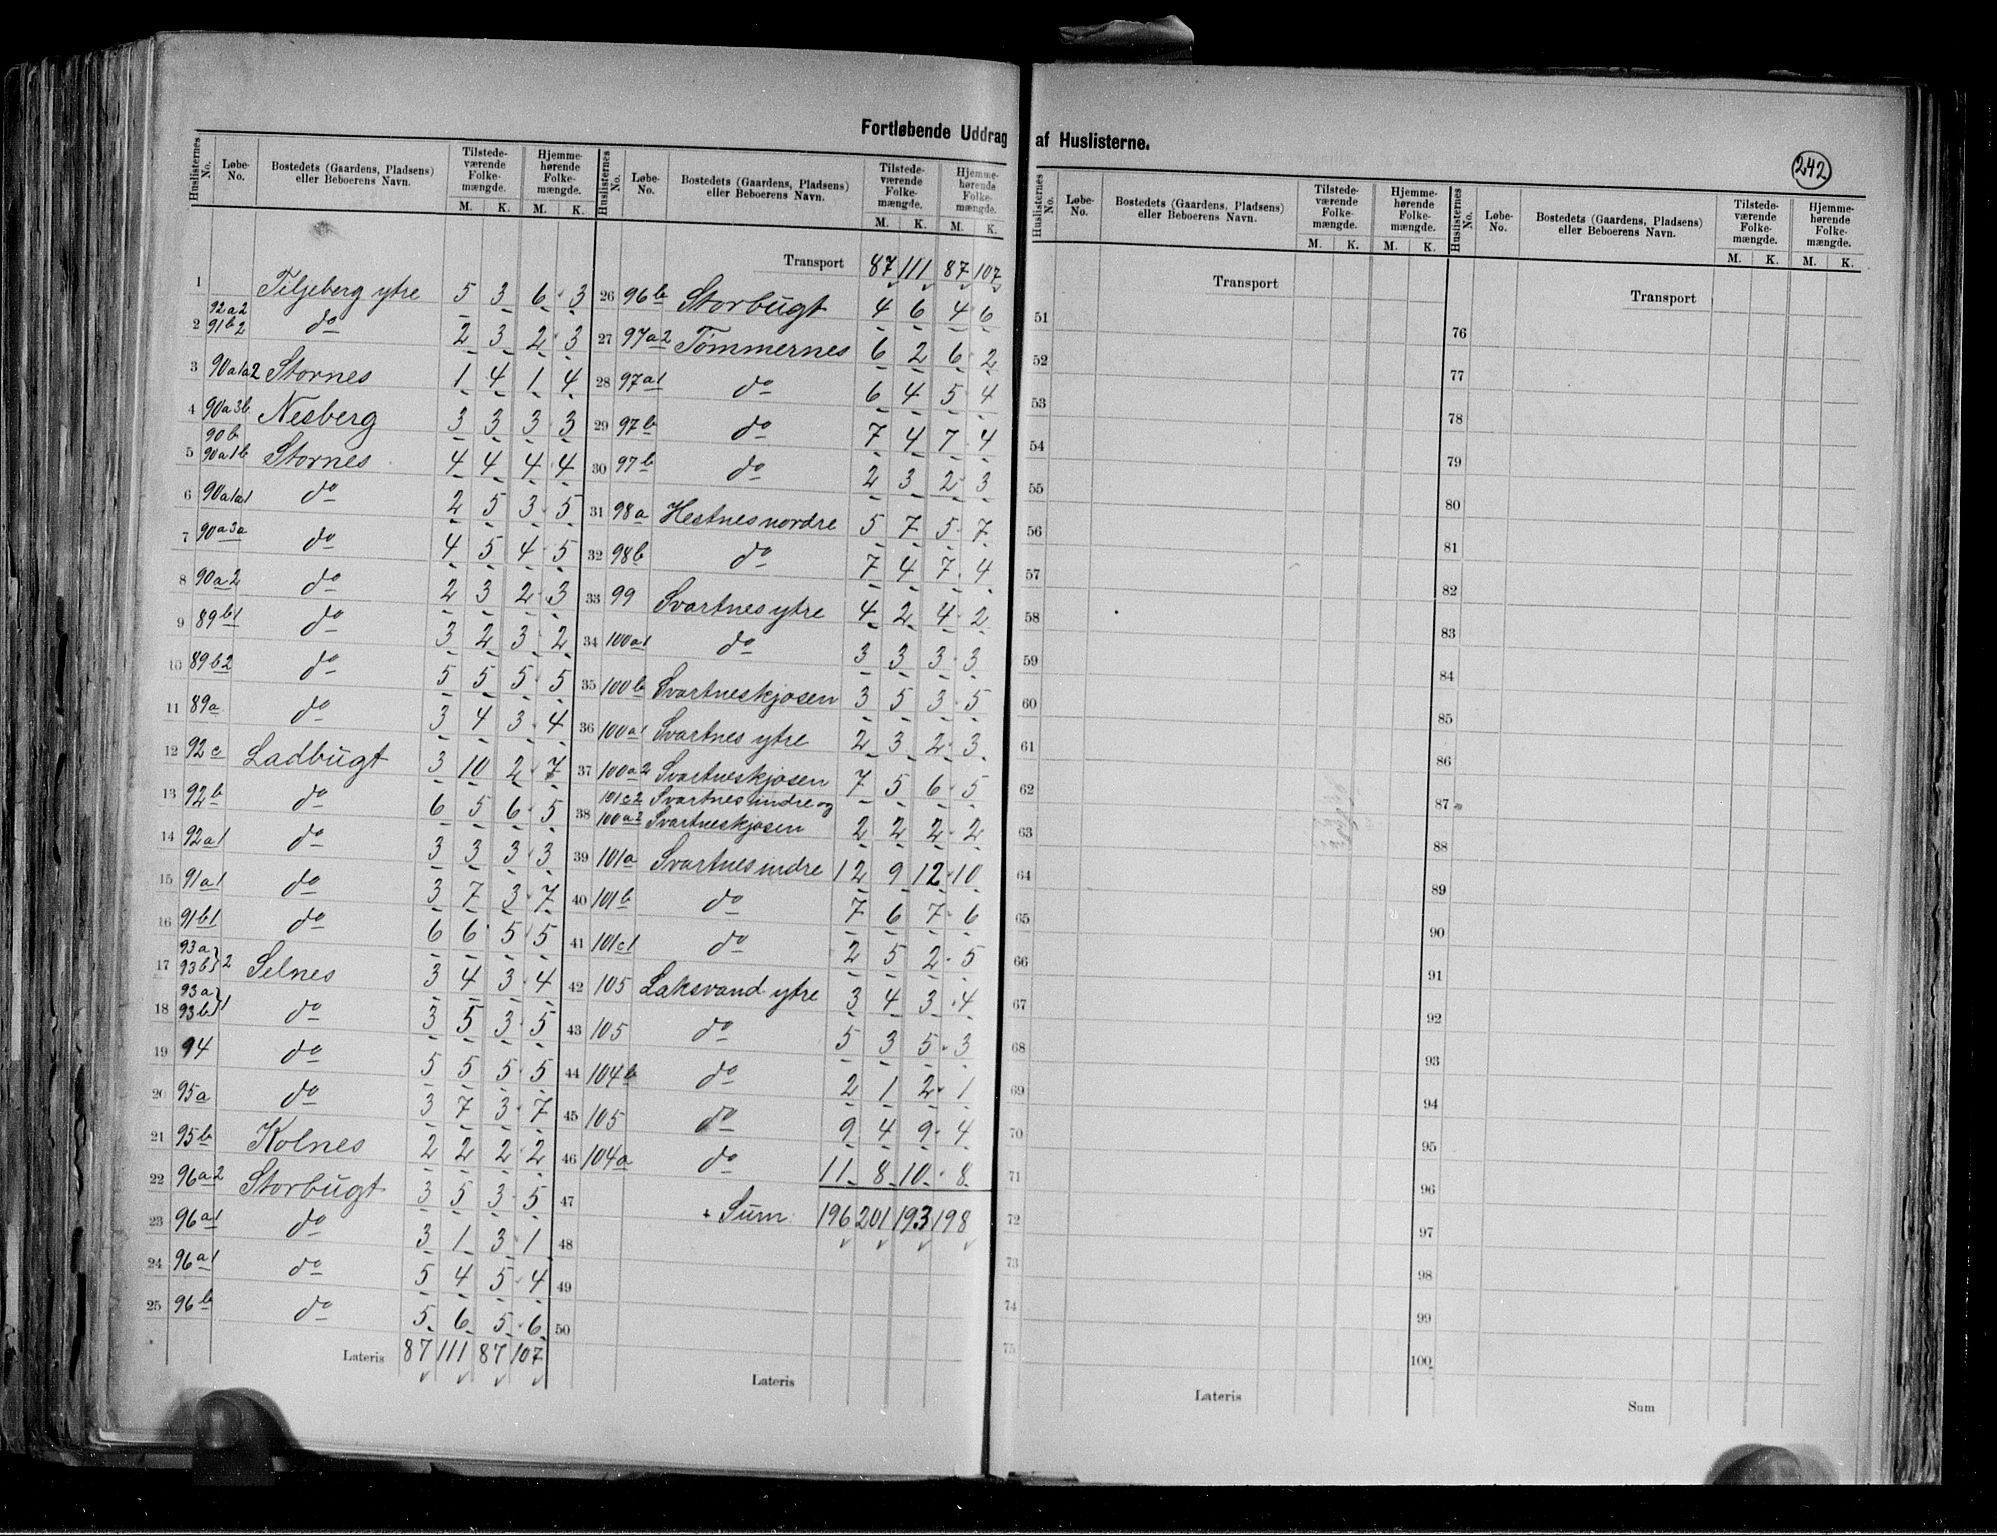 Fortløbende Uddrag af Huslisterne.
242
Huslisternes No. Løbe-No. Bostedets (Gaardens, Pladsens) eller Beboerens Navn. Tilstede-værende Folke-mængde. M. K. Hjemme-hørende Folke-mængde. M. K.
1 Tiljeberg ytre 5 3 6 3
2 92a2 91b2 do 2 3 2 3
3 90a1a2 Stornes 1 4 1 4
4 90a3b Nesberg 3 3 3 3
5 90b 90a1b Stornes 4 4 4 4
6 do 2 5 3 5
7 90a3a do 4 5 4 5
8 90a2 do 2 3 2 3
9 89b1 do 3 2 3 2
10 89b2 do 5 5 5 5
11 89a do 3 4 3 4
12 92c Ladbugt 3 10 2 7
13 92b do 6 5 6 5
14 92a1 do 3 3 3 3
15 91a1 do 3 7 3 7
16 91b1 do 6 6 5 5
17 93a 93b } 2 Selnes 3 4 3 4
18 93a 93b } 1 do 3 5 3 5
19 94 do 5 5 5 5
20 95a do 3 7 3 7
21 95b Kolnes 2 2 2 2
22 96a2 Storbugt 3 5 3 5
23 96a1 do 3 1 3 1
24 96a1 do 5 4 5 4
25 96b do 5 6 5 6
Lateris 87 111 87 107
Huslisternes No. Løbe-No. Bostedets (Gaardens, Pladsens) eller Beboerens Navn. Tilstede-værende Folke-mængde. M. K. Hjemme-hørende Folke-mængde. M. K.
Transport 87 111 87 107
26 96b Storbugt 4 6 4 6
27 97a2 Tømmernes 6 2 6 2
28 97a1 do 6 4 5 4
29 97b do 7 4 7 4
30 97b do 2 3 2 3
31 98a Hestnes nordre 5 7 5 7
32 98b do 7 4 7 4
33 99 Svartnes ytre 4 2 4 2
34 100a1 do 3 3 3 3
35 100b Svartneskjosen 3 5 3 5
36 100a1 Svartnes ytre 2 3 2 3
37 100a2 Svartneskjosen 7 5 6 5
38 101c2 Svartnes indre og
100a2 Svartneskjosen 2 2 2 2
39 101a Svartnes indre 12 9 12 10
40 101b do 7 6 7 6
41 101c1 do 2 5 2 5
42 105 Laksvand ytre 3 4 3 4
43 105 do 5 3 5 3
44 104b do 2 1 2 1
45 105 do 9 4 9 4
46 104a do 11 8 10 8
47 Sum 196 201 193 198
48
49
50
Lateris
Huslisternes No. Løbe-No. Bostedets (Gaardens, Pladsens) eller Beboerens Navn. Tilstede-værende Folke-mængde. M. K. Hjemme-hørende Folke-mængde. M. K.
Transport
51
52
53
54
55
56
57
58
59
60
61
62
63
64
65
66
67
68
69
70
71
72
73
74
75
Lateris
Huslisternes No. Løbe-No. Bostedets (Gaardens, Pladsens) eller Beboerens Navn. Tilstede-værende Folke-mængde. M. K. Hjemme-hørende Folke-mængde. M. K.
Transport
76
77
78
79
80
81
82
83
84
85
86
87
88
89
90
91
92
93
94
95
96
97
98
99
100
Sum